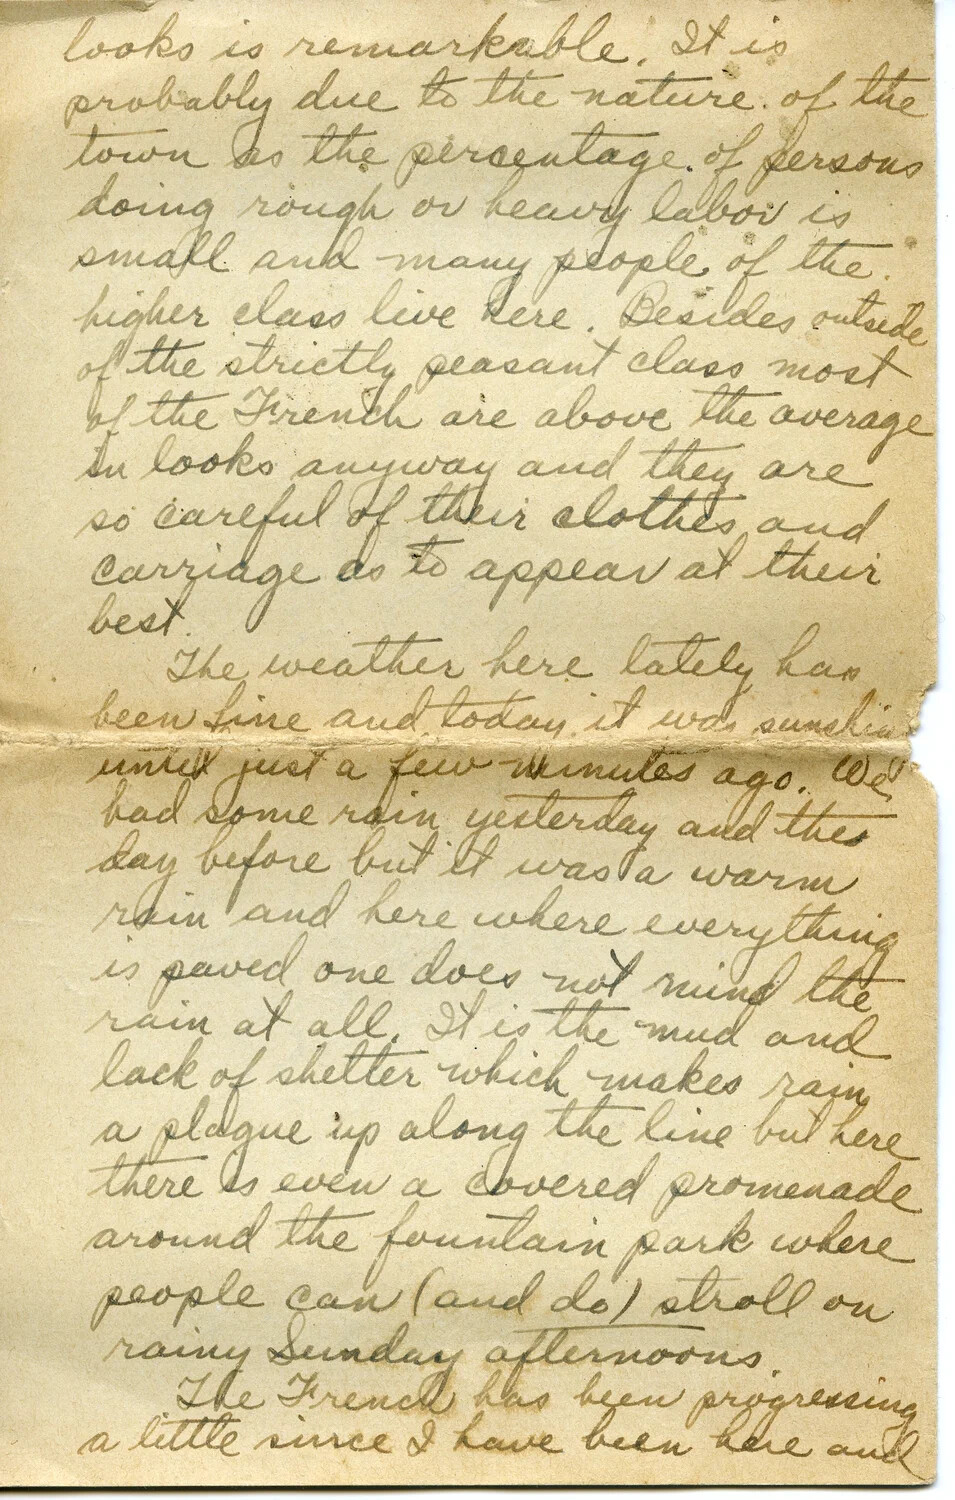 looks is remarkable. It is
probably due to the nature of the
town as the percentage of persons
doing rough or heavy labor is
small and many people of the
higher class live here. Besides outside
of the strictly peasant class most
of the French are above the average
in looks anyway and they are
so careful of their clothes and
carriage as to appear at their
best.
The weather here lately has
been fine and today it was sunshine
until just a few minutes ago. We
had some rain yesterday and the
day before but it was a warm
rain and here where everything
is paved one does not mind the
rain at all. It is the mud and
lack of shelter which makes rain
a plague up along the line but here
there is even a covered promenade
around the fountain park where
people can (and do) stroll on
rainy Sunday afternoons.
The French has been progressing
a little since I have been here and